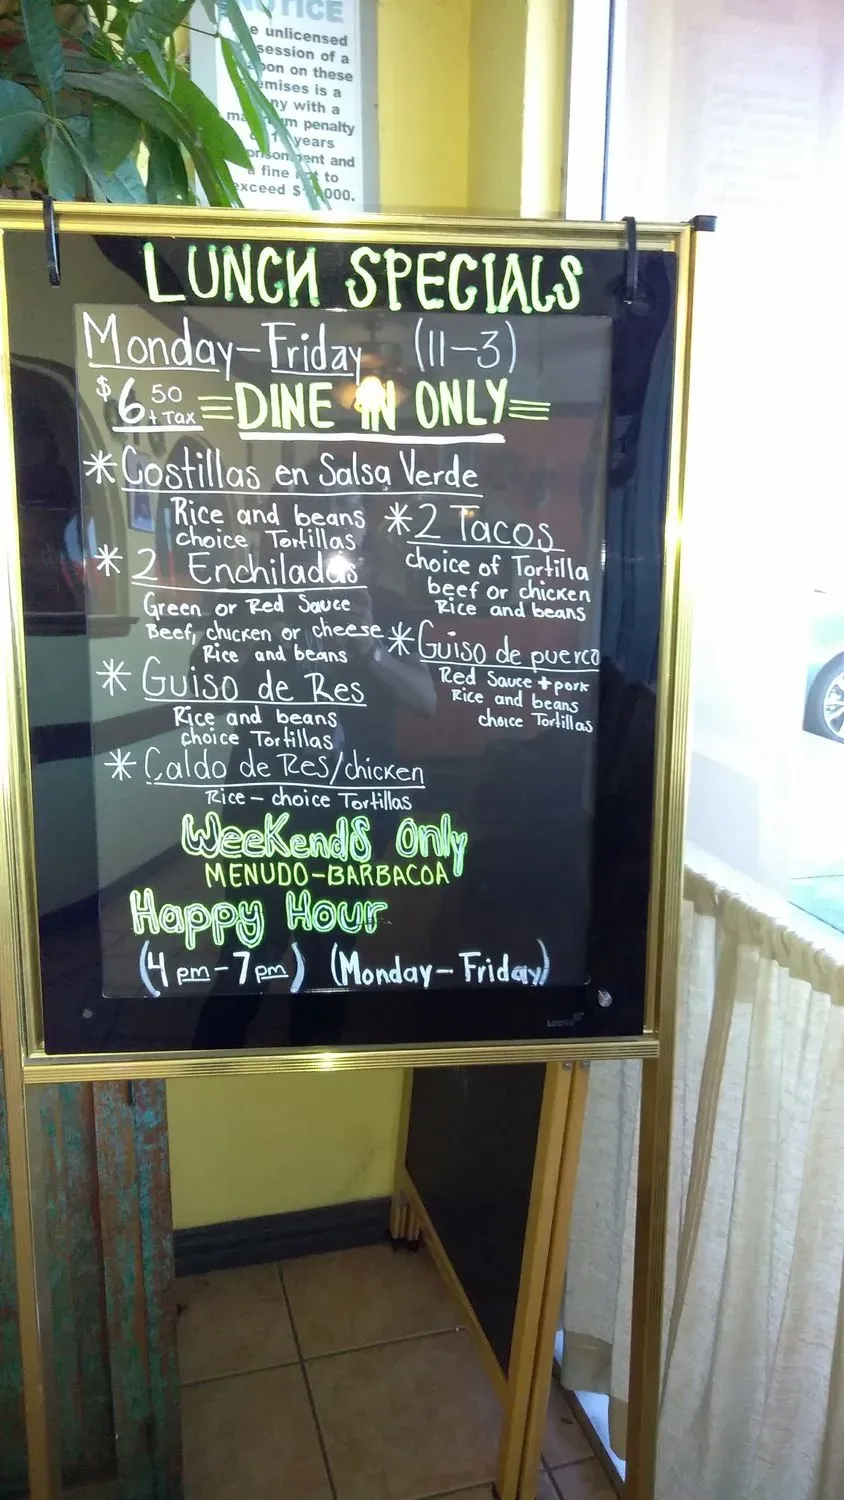 NOTICE
e unlicensed
session of a
pon on these
emises is a
ny with a
m penalty
years
and
fine to
exceed
LUNCH SPECIALS
Monday-Friday (11-3)
$6.50 + Tax =DINE IN ONLY=
*Costillas en Salsa Verde
Rice and beans
choice Tortillas
*2 Enchiladas
Green or Red Sauce
Beef, chicken or cheese
Rice and beans
*Guiso de Res
Rice and beans
choice Tortillas
*Caldo de Res/chicken
Rice - choice Tortillas
*2 Tacos
choice of Tortilla
beef or chicken
Rice and beans
*Guiso de puerco
Red Sauce + pork
Rice and beans
choice Tortillas
Weekends Only
MENUDO-BARBACOA
Happy Hour
(4pm-7pm) (Monday-Friday)